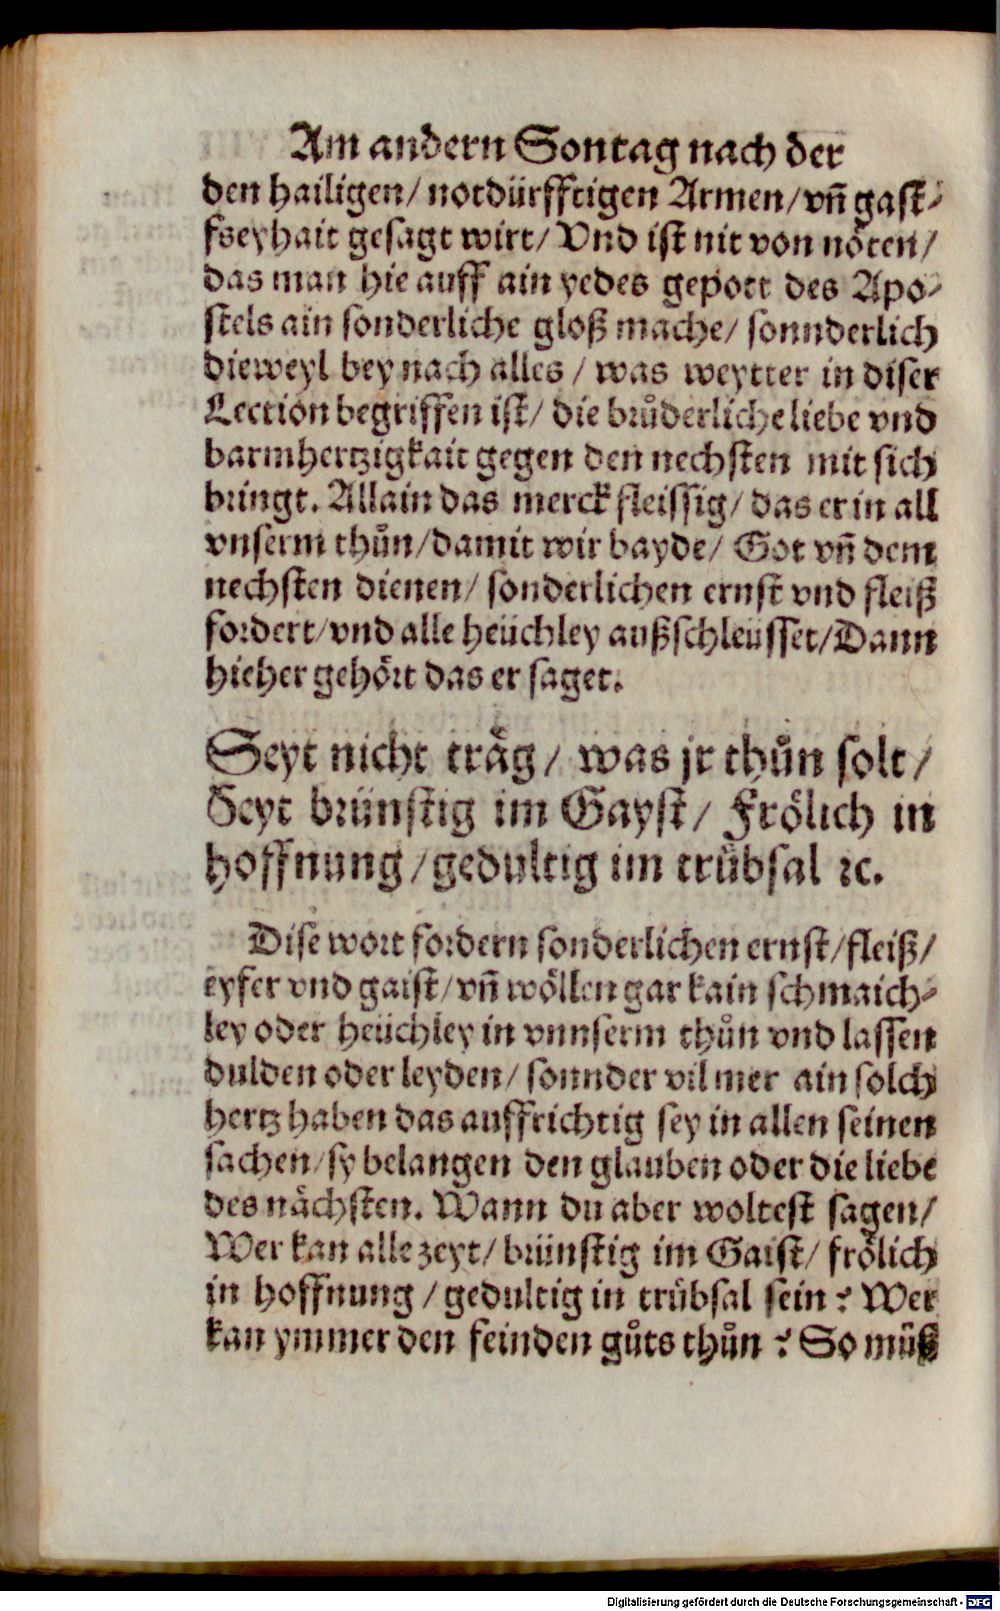 Am andern Sontag nach der
den hailigen/ notdürfftigen Armen/ vñ gast⸗
freyhait gesagt wirt/ Vnd ist nit von nöten/
das man hie auff ain yedes gepott des Apo⸗
stels ain sonderliche gloß mache/ sonnderlich
dieweyl bey nach alles / was weytter in diser
Lection begriffen ist/ die brůderliche liebe vnd
barmhertzigkait gegen den nechsten mit sich
bringt. Allain das merck fleissig/ das er in all
vnserm thůn/damit wir bayde/ Got vñ dem
nechsten dienen/ sonderlichen ernst vnd fleiß
fordert/vnd alle heüchley außschleüsset/Dann
hieher gehört das er saget.
Seyt nicht träg/ was jr thůn solt/
Seyt brünstig im Gayst/ Frölich in
hoffnung/gedultig im trübsal ꝛc.
Dise wort fordern sonderlichen ernst/fleiß/
eyfer vnd gaist/vñ wöllen gar kain schmaich⸗
ley oder heüchley in vnnserm thůn vnd lassen
dulden oder leyden/ sonnder vil mer ain solch
hertz haben das auffrichtig sey in allen seinen
sachen/sy belangen den glauben oder die liebe
des nächsten. Wann du aber woltest sagen/
Wer kan alle zeyt/ brünstig im Gaist/ frölich
in hoffnung/gedultig in trübsal sein? Wer
kan ymmer den feinden gůts thůn? So můß
Digitalisierung gefördert durch die Deutsche Forschungsgemeinschaft - DFG